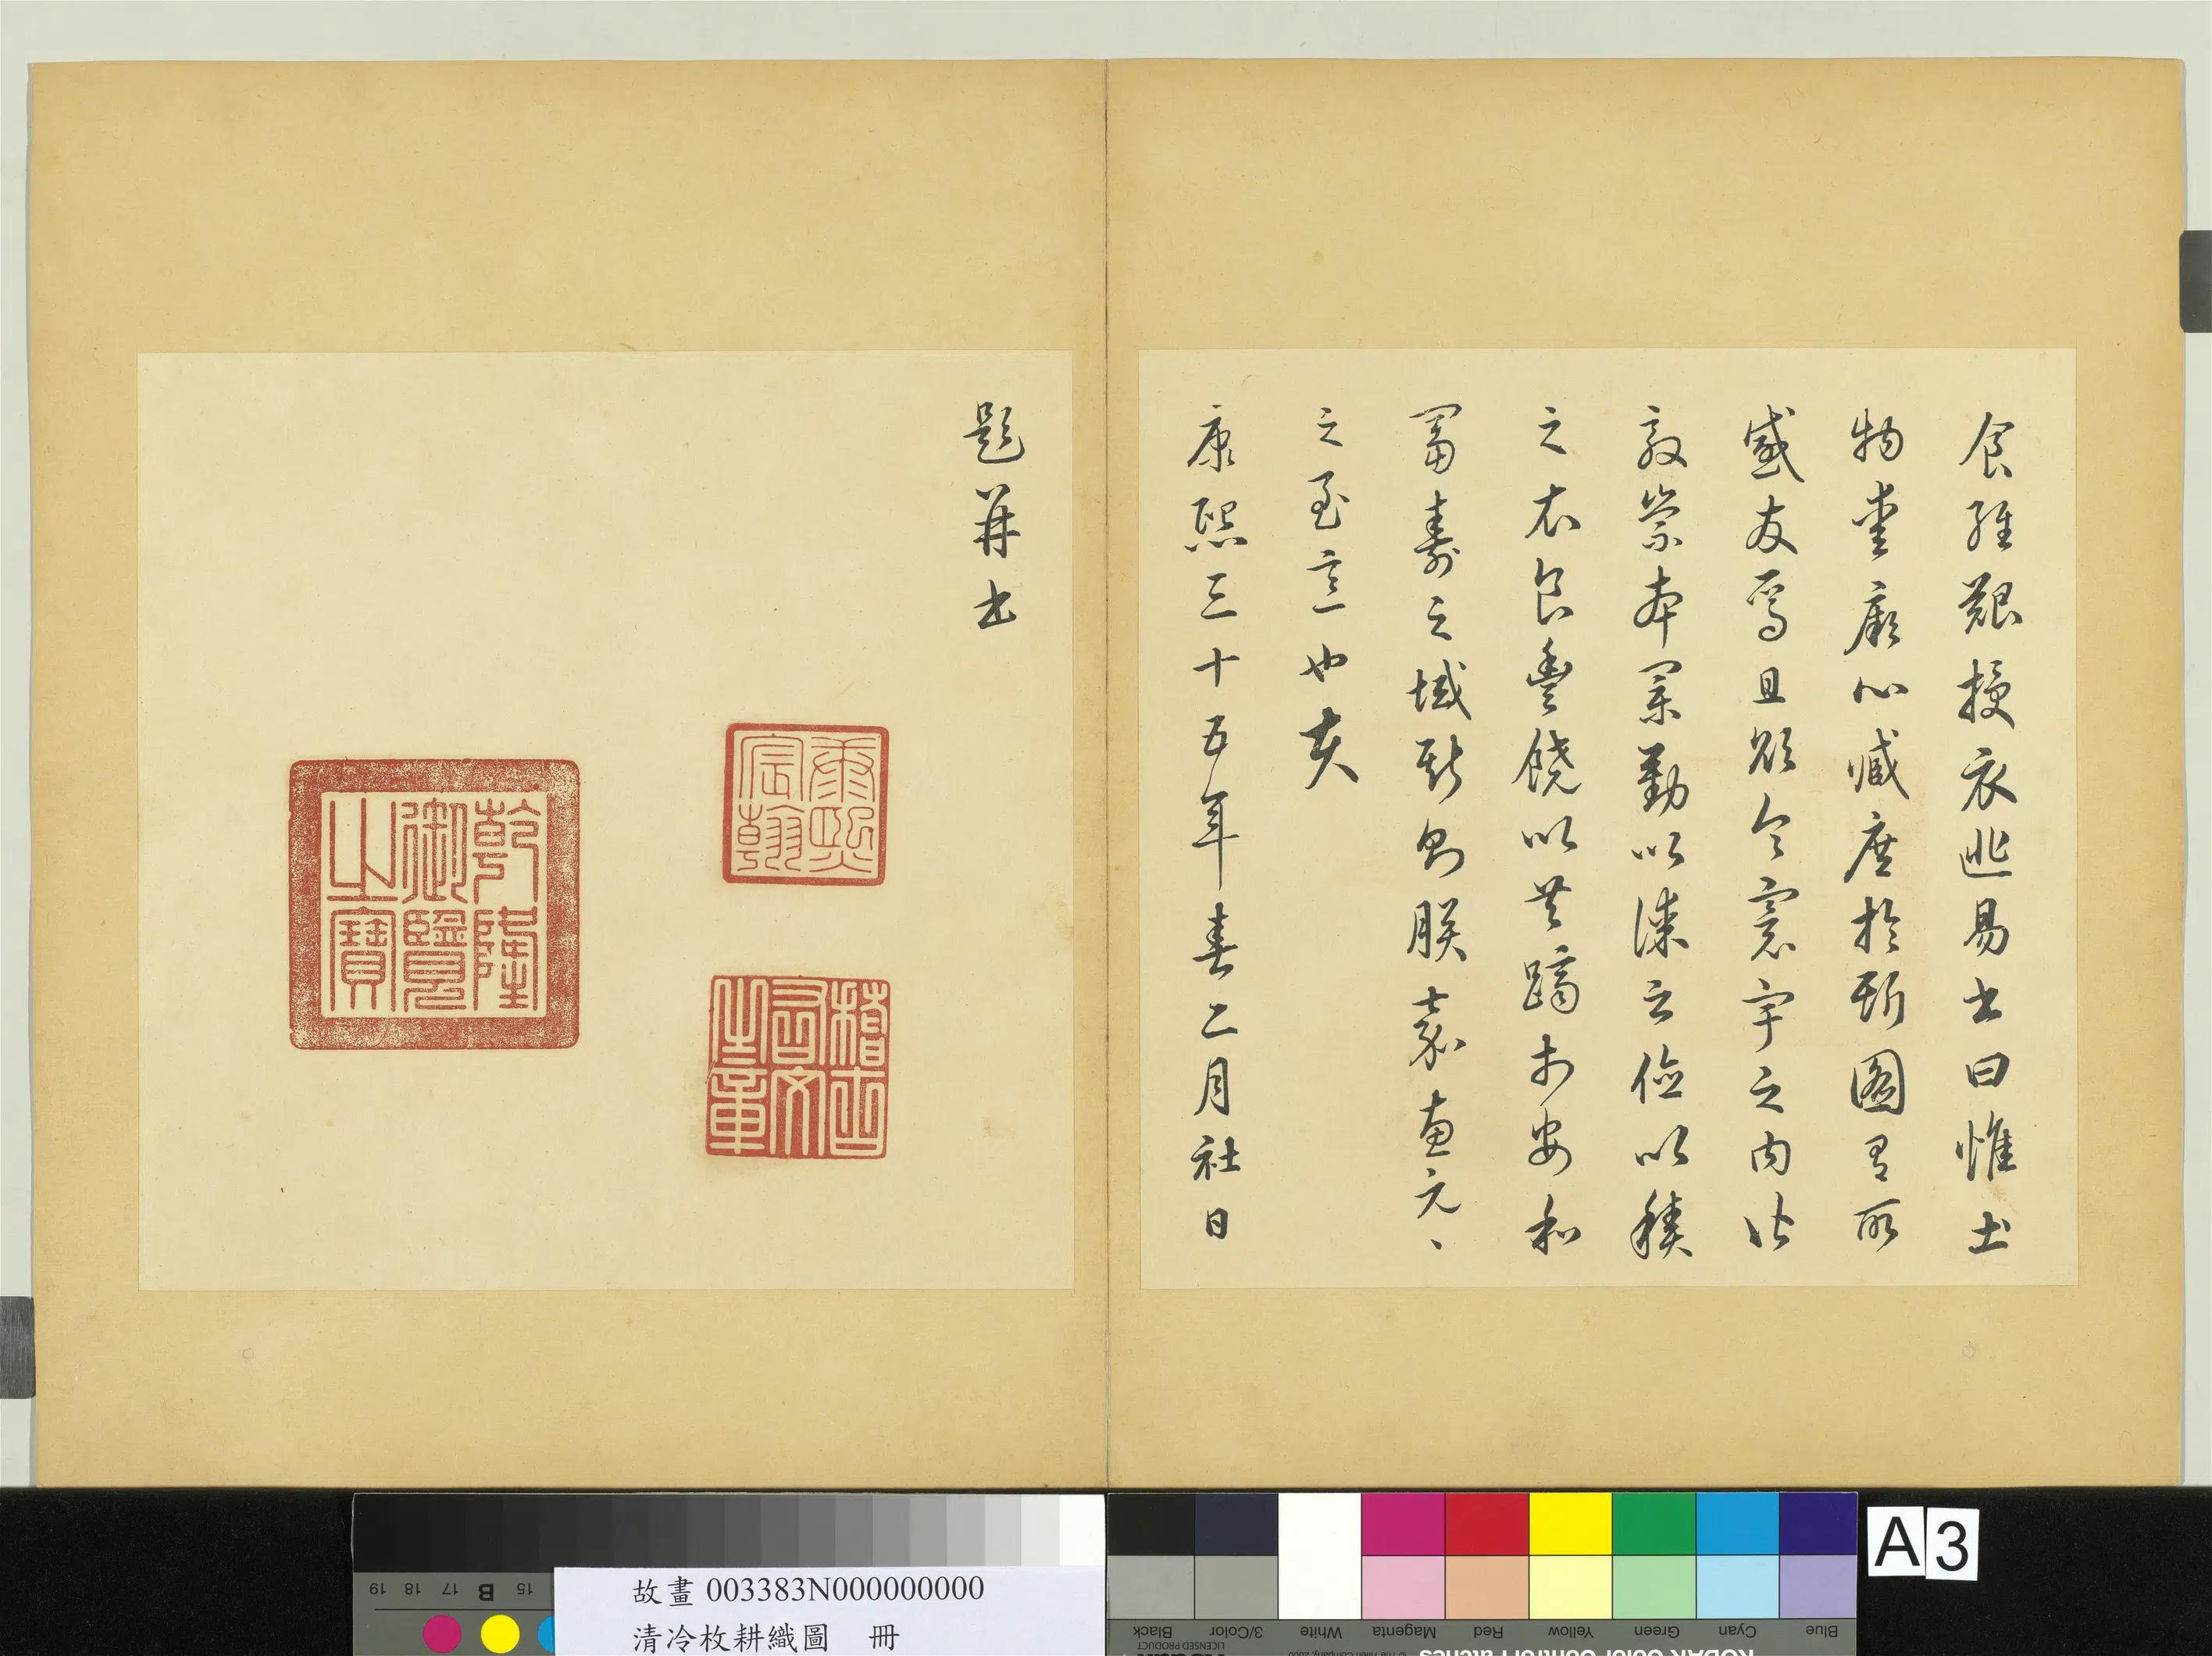 食維艱授衣匪易書曰惟土
物愛厥心臧庶於斯圖有所
感發焉且欲令寰宇之內皆
敦崇本業勤以謀之儉以積
之衣食豐饒以共躋於安和
富壽之域斯則朕嘉惠元〻
之至意也夫
康熙三十五年春二月社日
題并書
康熙宸翰
稽古右文之章
乾隆御覽之寶
故畫 003383N000000000
清冷枚耕織圖 冊
19 18 17 B 15
Blue Cyan Green Yellow Red Magenta White 3/Color Black
LICENSED PRODUCT
A 3